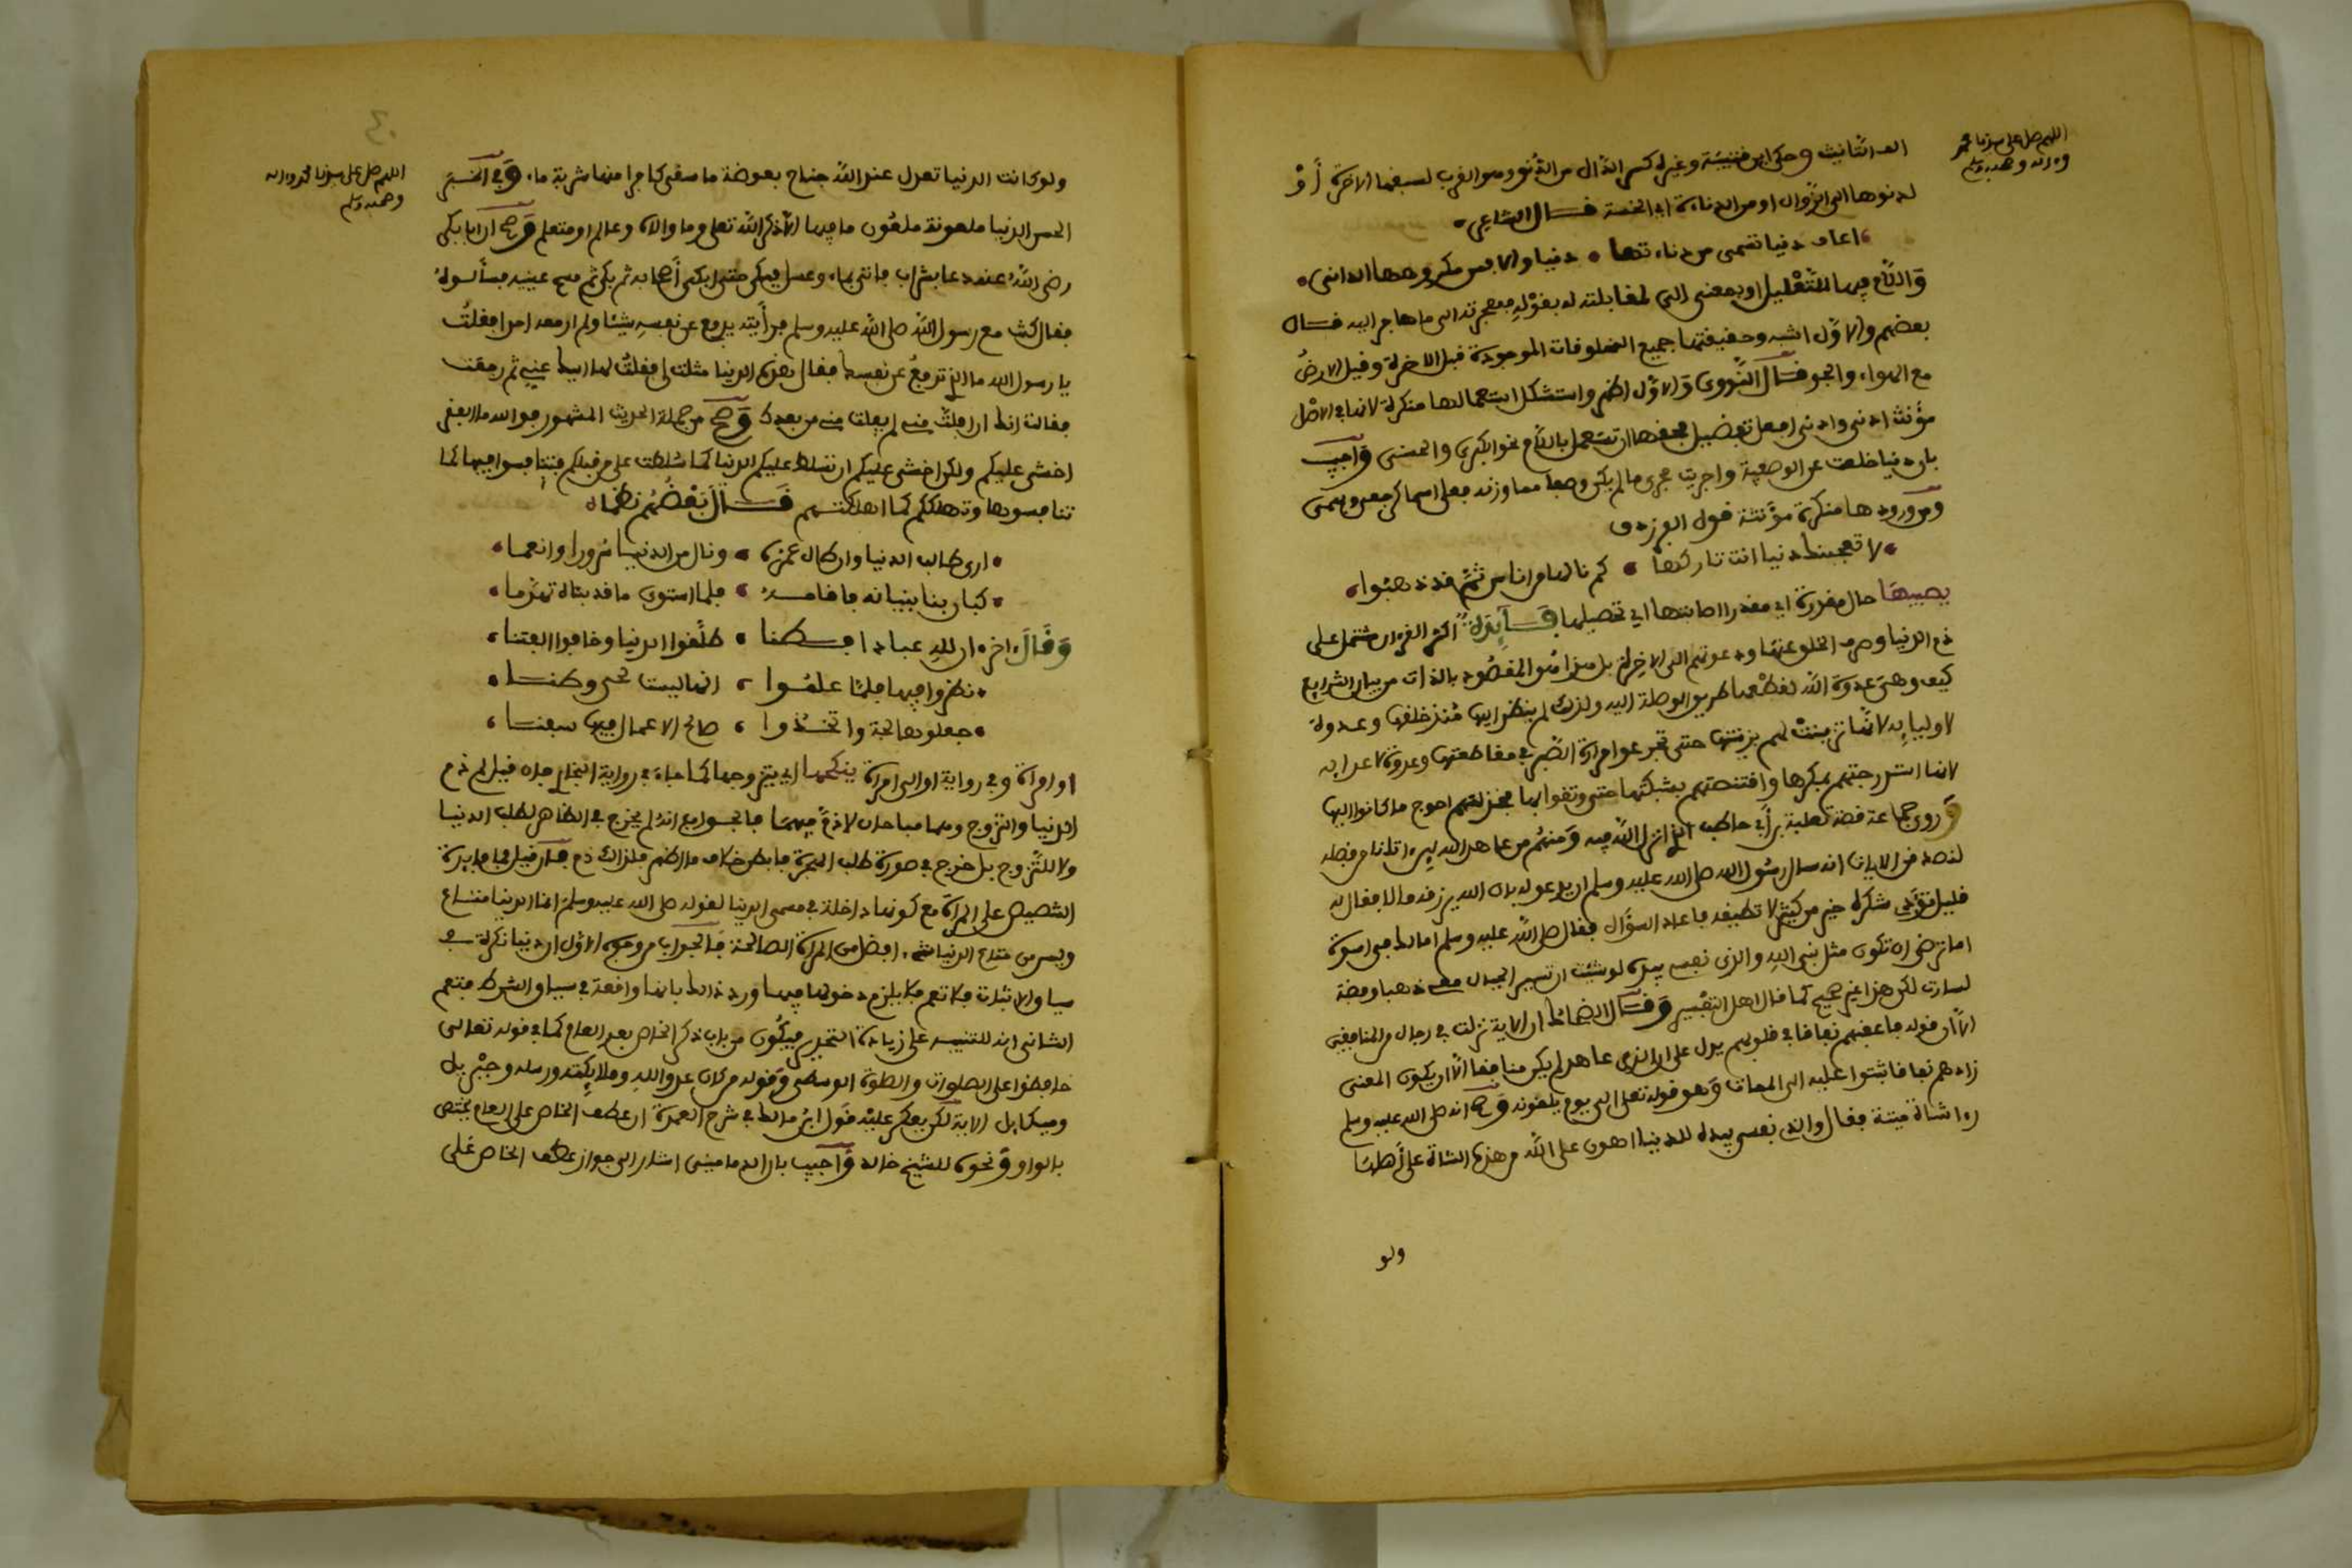 اللهم صل على سيدنا محمد
وءاله وصحبه وسلم
الف التانيث وحكى ابن قتيبة وغيره كسر الدال من الدُّنُو وهو القرب لسبقها الاخرة أَوْ
لدنوها الى الزوال او من الدناءة اي الخسة قال الشاعر
اعاف دنيا تسمى من دناءتها دنيا والا فمن مكروهها الدانى
وَاللام فيها للتعْليل او بمعنى الى لمقابلته له بقوْلِهِ فهجرته الى ما هاجر اليه قال
بعضهم والاوَّل اشبه وحقيقتها جميع المخلوقات الموجودة قبل الاخرة وقيل الارضُ
مع الهواء والجو قال النَّووى وَالاوَّل اظهر واستشكل استعمالها منكرة لانها في الاصْل
مؤنث ادنى وادنى افعل تفضيل فحقها ان تستعمل باللام نحو الكبرى والحسنى وَأجيب
بان دنيا خلعت عن الوصفية واجريت مجرى ما لم يكن وصفا مما وزنه فعلى اسما كرجعى وبهمى
ومن ورودها منكرة مؤنثة قول الفرزدق
لا تعجبنك دنيا انت تاركها كم نالها من اناس ثمَّ قد ذهبُوا
يصيبهَا حال مقدرة اي مقدرا اصابتها اي تحصيلها فَـائِدة اكثر القرءان مشتمل على
ذم الدنيا وصرف الخلق عنها ودعوتهم الى الاخِرة بل هذا هُو المقصُود بالذات من بيان الشرايع
كيف وهىَ عدوة اللّه لقطْعها طريق الوصلة اليه ولذلك لم ينظر اليها مُنذ خلقها وعدوة
لاوليايِه لانَّها تزينتْ لهم بزينتها حتى تجرعوا مرارة الصَّبر في مقاطعتها وعدوة لاعدايه
لانها استدرجتهم بمكرها واقتنصتهم بشبكتها حتى وثقوا بها فخذلتهم احوج ما كانوا اليها
وَروى جماعة قصة ثعلبة بن أبي حاطب الذي انزل اللّه فيه وَمنهُم من عاهد اللّه لين ءاتانا من فضله
لنصدقن الاية انه سال رسُول اللّه صلى اللّه عليه وسلم ان يدعو له بان اللّه يرزقه مالا فقال له
قليل تؤدى شكره خير من كثير لا تطيقه فاعاد السؤال فقال صلى اللّه عليه وسلم اما لك فى اسوة
اما ترضى ان تكون مثل نبى اللّهِ والذى نفسى بيده لو شئت ان تسير الجبال معى ذهبا وفضة
لسارت لكن هذا غير صحيح كما قال اهل التفْسير وَقال الضحاك ان الاية نزلت في رجال من المنافقين
الاّ ان قوله فاعقبهم نفاقا في قلوبهم يدل على ان الذى عاهد لم يكن منافقا الّا ان يكون المعنى
زادهم نفاقا ثبتوا عليه الى الممات وَهو قوله تعلى الى يوم يلقونه وَصح انه صلى اللّه عليه وسلم
رءا شاة ميتة فقال والذي نفسى بيده للدنيا اهون على اللّه من هذه الشاة على أهلها
ولو
اللهم صل على سيدنا محمد وءاله
وصحبه وسلم
ولو كانت الدنيا تعدل عند اللّه جناح بعوضة ما سقى كافرا منها شربة ماء وَفى الخبر
الحسن الدنيا ملعونة ملعُون ما فيها الا ذكر اللّه تعلى وما والاه وعالم او متعلم وَصح ان ابا بكر
رضى اللّهُ عنه دعا بشراب فاتى بماء وعسل فبكى حتى ابكى أصحابه ثم بكى ثم مسح عينيه فسألوهُ
فقال كنت مع رسول اللّه صلى اللّه عليه وسلم فرأيته يدفع عن نفسهِ شيئا ولم ار معه احدا فقلتُ
يا رسول اللّه ما الذي تدفعُ عن نفسك فقال هذه الدنيا مثلت لي فقلتُ لها اليك عني ثم رجعت
فقالت انك ان افلتَّ مني لم يفلت مني من بعدك وَصح من جملة الحديث المشهور فو اللّه ما الفقر
اخشى عليكم ولكن اخشى عليكم ان تبسط عليكم الدنيا كما بُسطت على من قبلكم فتنافسوا فيها كما
تنافسوها وتهلككم كما اهلكتهم قَـالَ بَعْضُهُم نظما
ارى طالب الدنيا وان طال عمره ونال من الدنيا سُرورا وانعما
كبان بنا بنيانه فاقامه فلما استوى ما قد بناه تهدَّما
وَقَالَ اخر ان للهِ عبادا فطنا طلَّقوا الدنيا وخافوا الفتنا
نظروا فيها فلمَّا علمُوا انها ليست لحى وطنا
جعلوها لجة واتخذُوا صالح الاعمال فيها سفنا
او امراة وفي رواية او الى امراة ينكحها اي يتزوجها كما جاء في رواية البخاري فان قيل لم ذم
الدنيا والتزوج وهما مباحان لا ذمَّ فيهمَا فالجواب انه لم يخرج في الظاهر لطلب الدنيا
ولا للتَّزوج بل خرج في صورة طلب الهجرة فابطن خلاف ما اظهر فلذلك ذم فان قيل فما فايدة
التنصيص على المراة مع كونها داخلة في مسمى الدنيا لقوله صلى اللّه عليه وسلم انما الدنيا متاع
وليس من متاع الدنيا شىء افضل من المراة الصالحة فَالجواب من وجوه الاوّل ان دنيا نكرة في
سياق الاثبات فلا تعم فلا يلزم دخولها فيها ورد ذلك بانها واقعة في سياق الشرط فتعم
الثانى انه للتنبيه على زيادة التحذير فيكُون من باب ذكر الخاص بعد العام كما في قوله تعالى
حافظوا على الصلوات والصلوة الوسطى وَقوله من كان عدوا للهِ وملايِكته ورسله وجبْريل
وميكايل الاية لكن يعكر عليْه قَول ابْن مالك في شرح العمدة ان عطف الخاص على العام يختص
بالواو وَنحوه للشيخ خالد وَأجيب بان الدمامينى اشار الى جواز عطف الخاص عَلى